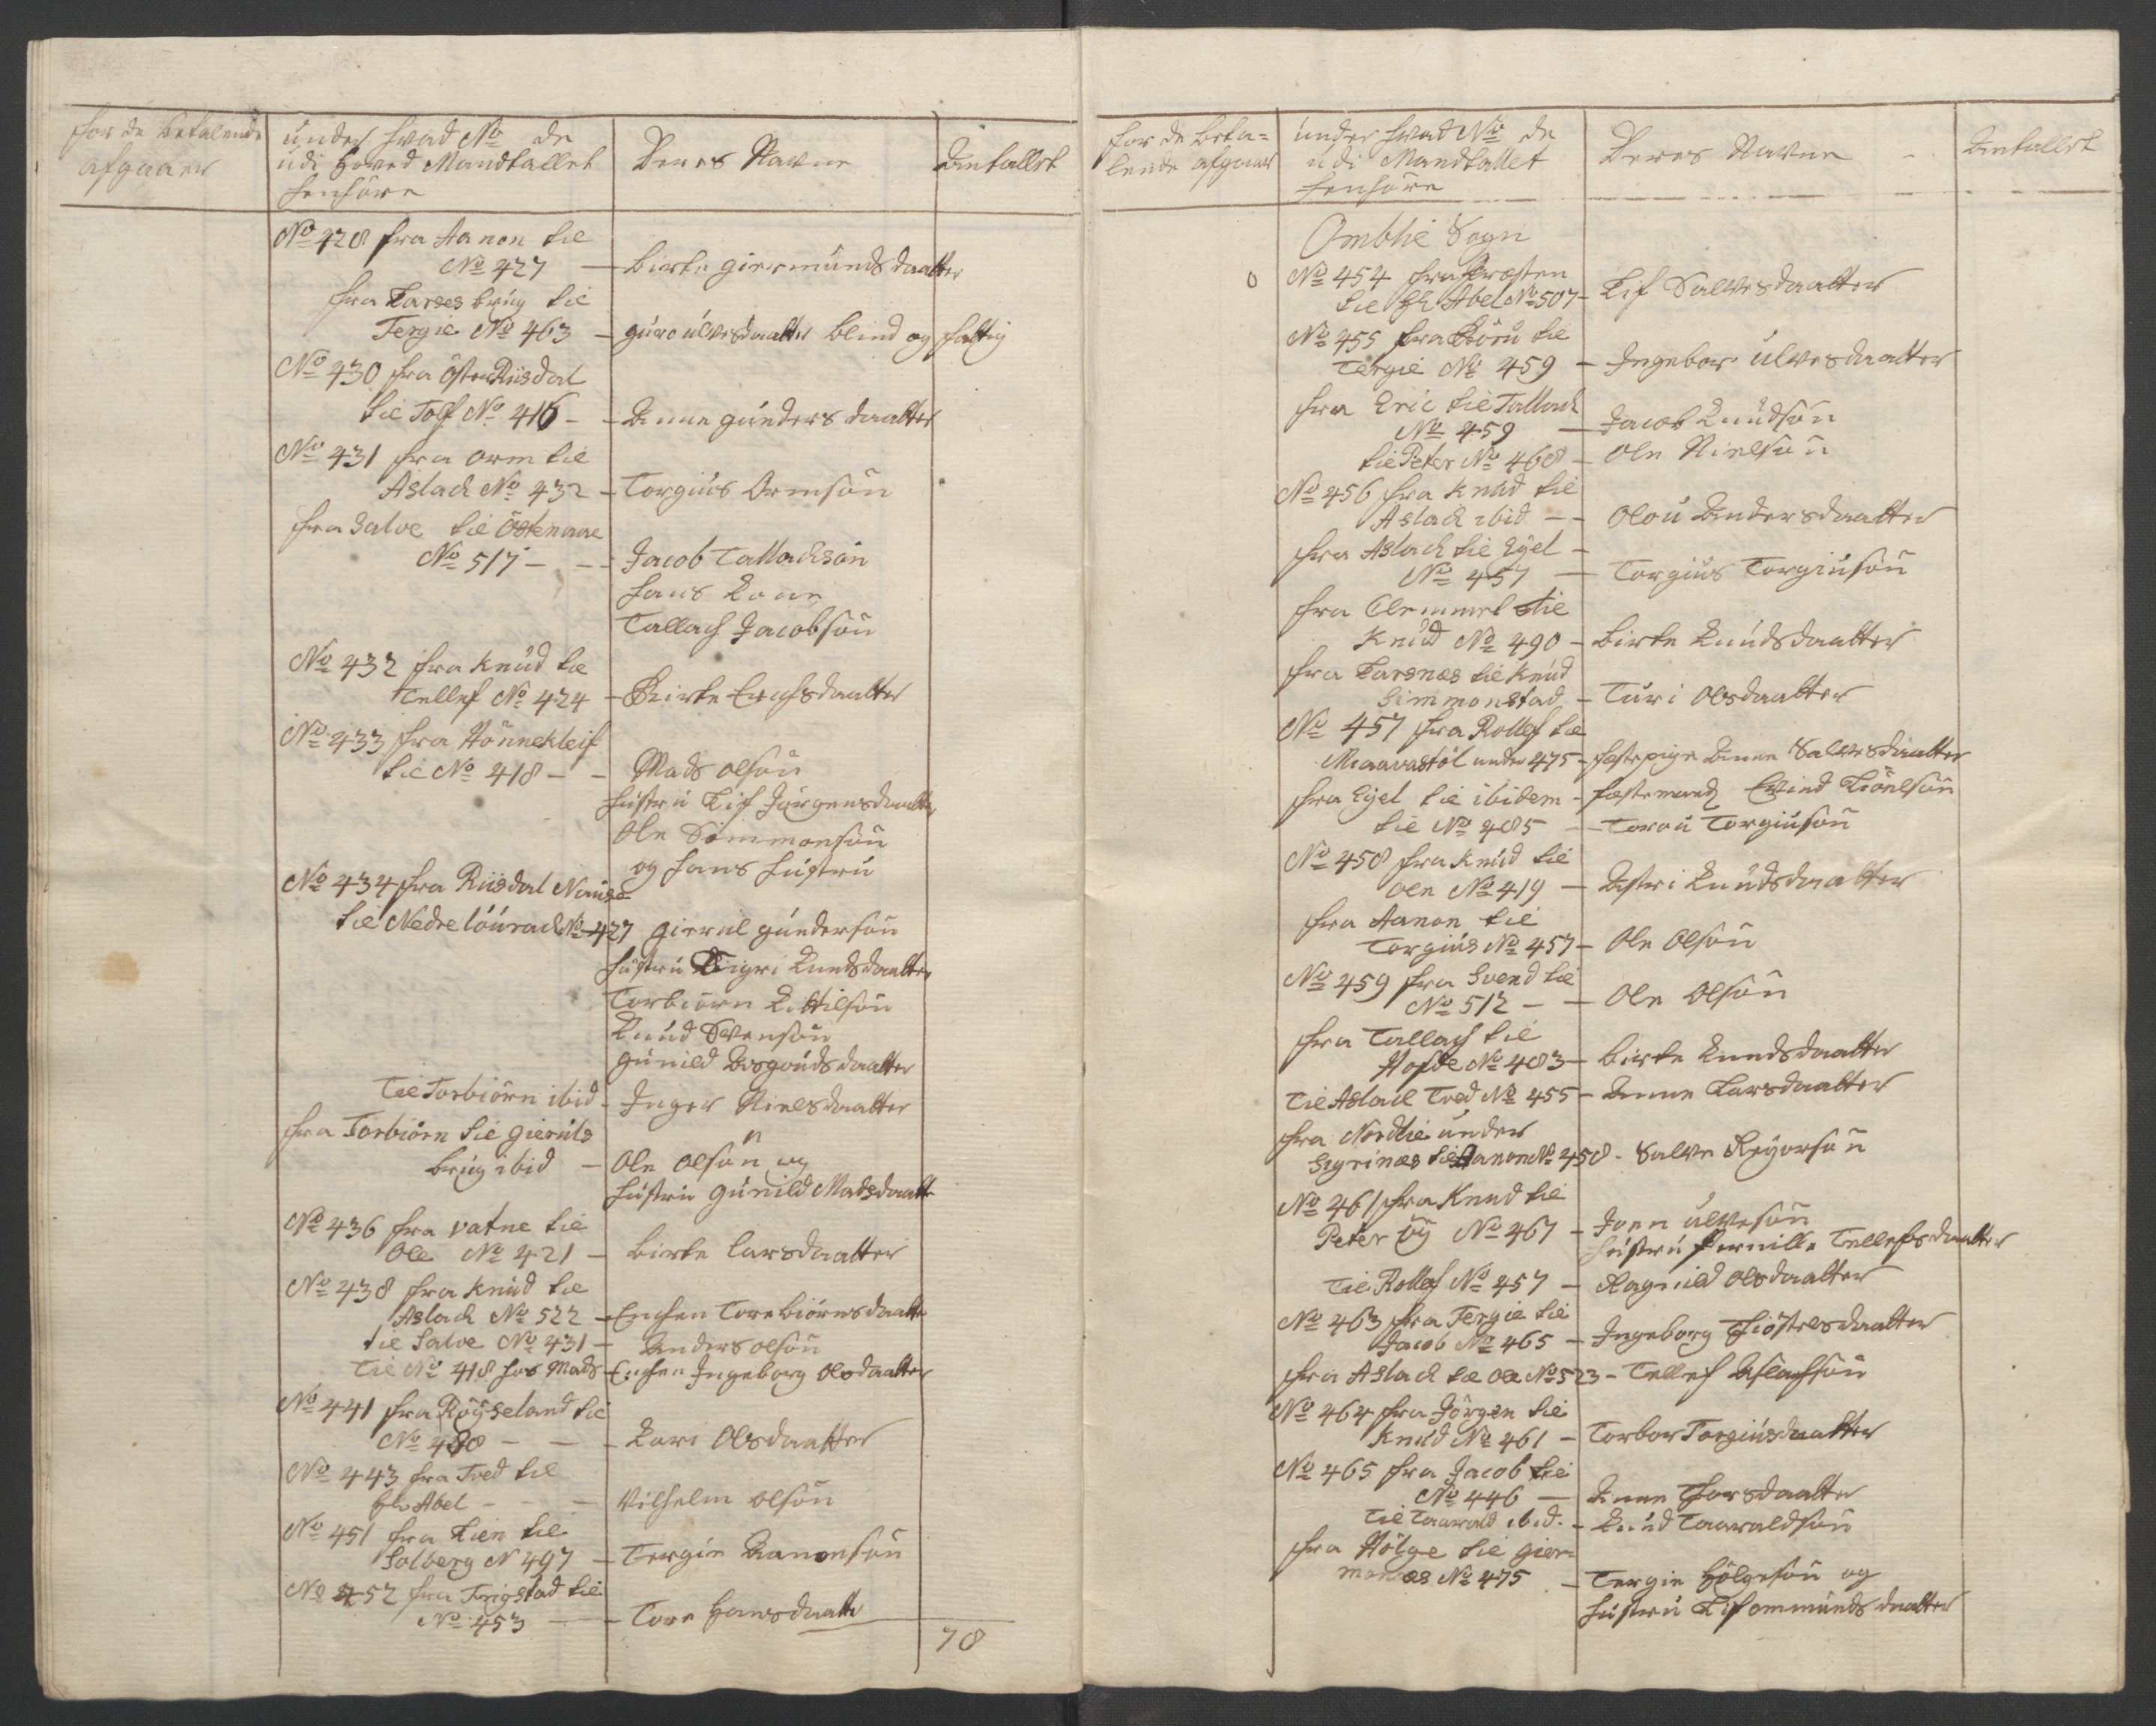 for de betalende
afgaaer
under hvad No de
udi Hoved Mandtallet
henhöre
Deres Navne
Antallet
No 428 fra Aanon til
No 427 — birte giermunds daatter
fra Larses brüg til
Tergie No 463 — guro ulvesdaatter blind og fattig
No 430 fra Öster Riisdal
til Tolf No 416 - - Anne günders daatter
No 431 fra Orm til
Aslack No 432 - Torgius Ormsön
fra Salve til Östenaae
No 517 - - - Jacob Tallachsön
hans Kone
Tallach Jacobsön
No 432 fra Knüd til
Tellef No 424 - Birte Erichsdaatter
No 433 fra Hönnekleif
til No 418 - - Mads olsön
hüstrü Lif Jörgensdaatter
Ole Simmonsön
og hans hüstrü
No 434 fra Riisdal
til Nedre No 427 gierul gündersön
hüstrü Sigri Knudsdaatter
Torbiörn Kittilsön
Knüd Svensön
günild Asgoudsdaatter
Til Torbiörn ibid - Inger Nielsdaatter
fra Torbiörn til gieruls
brüg ibid — Ole olsön og
hüstrü günild Madsdaatter
No 436 fra vatne til
Ole No 421 - birte larsdaatter
No 438 fra Knüd til
Aslack No 522 - Enchen Torebiörnsdaatter
til Salve No 431 - Anders olsön
Til No 418 hos Mads - Enchen Ingeborg olsdaatter
No 441 fra Röyseland til
No 480 - - - Kari Olsdaatter
No 443 fra Tved til
Hr Abel - - - Vilhelm olsön
No 451 fra Lien til
Solberg N 497 - Tergie Aanonsön
No 452 fra Trigstad til
No 453 - - Tore Hansdaatter
78
for de beta=
lende afgaaer
under hvad No de
udi Mandtallet
henhöre
Deres Navne
Antallet
Omblie Sogn
0 No 454 fra Præsten
til Hr Abel No 507 - Lif Salvesdaatter
No 455 fra Börü til
Tergie No 459 - Ingebor ulvesdaatter
fra Eric til Tallack
No 459 - Jacob Knudsön
til Peter No 468 - Ole Nielsön
No 456 fra Knüd til
Aslack ibid - - Olou Andersdaatter
fra Aslack til Eyel -
No 457 — Torgius Torgiusön
fra Clemmet til
Knüd No 490 - birte Knüdsdaatter
fra Larsnæs til Knüd
Simmonstad - Türi olsdaatter
No 457 fra Rollef til
Maavastöl under 475 - fæstepige Anne Salvesdaatter
fra Eyel til ibidem - fæstemand Evind Kiönelsön
til No 485 — Torou Torgiusön
No 458 fra Knüd til
Ole No 419 — Astri Knüdsdaatter
fra Aanon til
Torgius No 457 - Ole Olsön
No 459 fra Svend til
No 512 - - Ole Olsön
fra Tallach til
Hofde No 483 - birte Knudsdaatter
Til Aslack Tved No 455 - Anne Larsdaatter
fra Nordlie under
Sigrinæs til Aanon No 458 - Salve Reyersön
No 461 fra Knud til
Peter og No 467 - Joen ulvesön
hüstrü Pernille Tellefsdaatter
Til Rollef No 457 — Ragnild olsdaatter
No 463 fra Tergie til
Jacob No 465 - Ingeborg Thiöstelsdaatter
fra Aslack til Ole No 523 - Tellef Aslachsön
No 464 fra Jörgen til
Knüd No 461 - Torbor Torgiusdaatter
No 465 fra Jacob til
No 446 — Anne Thorsdaatter
Til Taarald ibid. - Knüd Taaraldsön
fra Hölge til gier=
monæs No 475 - Tergie Hölgesön og
hüstrü Lif ommundsdaatter